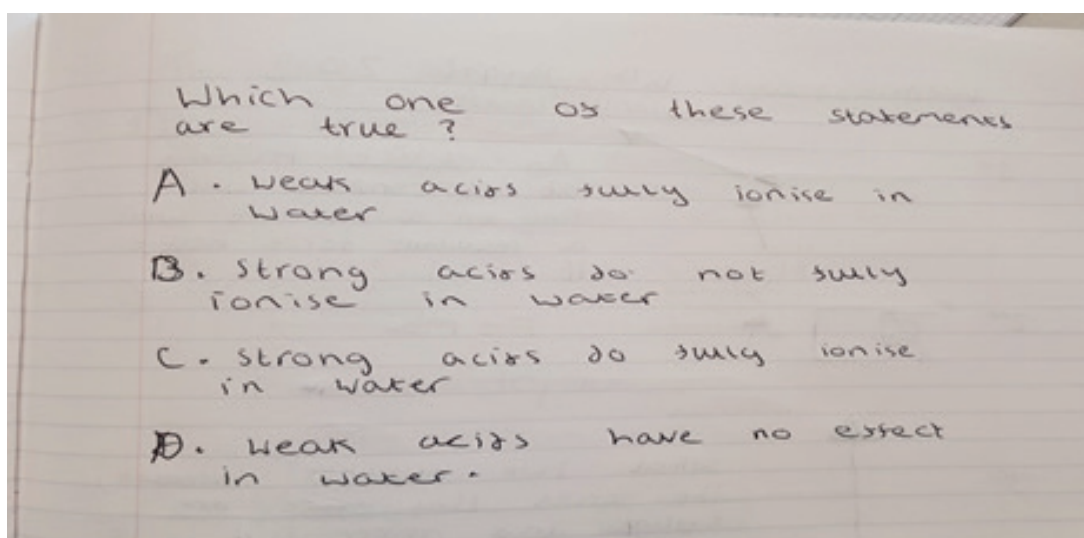 Which one of these statements
are true ?
A. weak acids fully ionise in
water
B. strong acids do not fully
ionise in water
C. strong acids do fully ionise
in water
D. weak acids have no effect
in water.